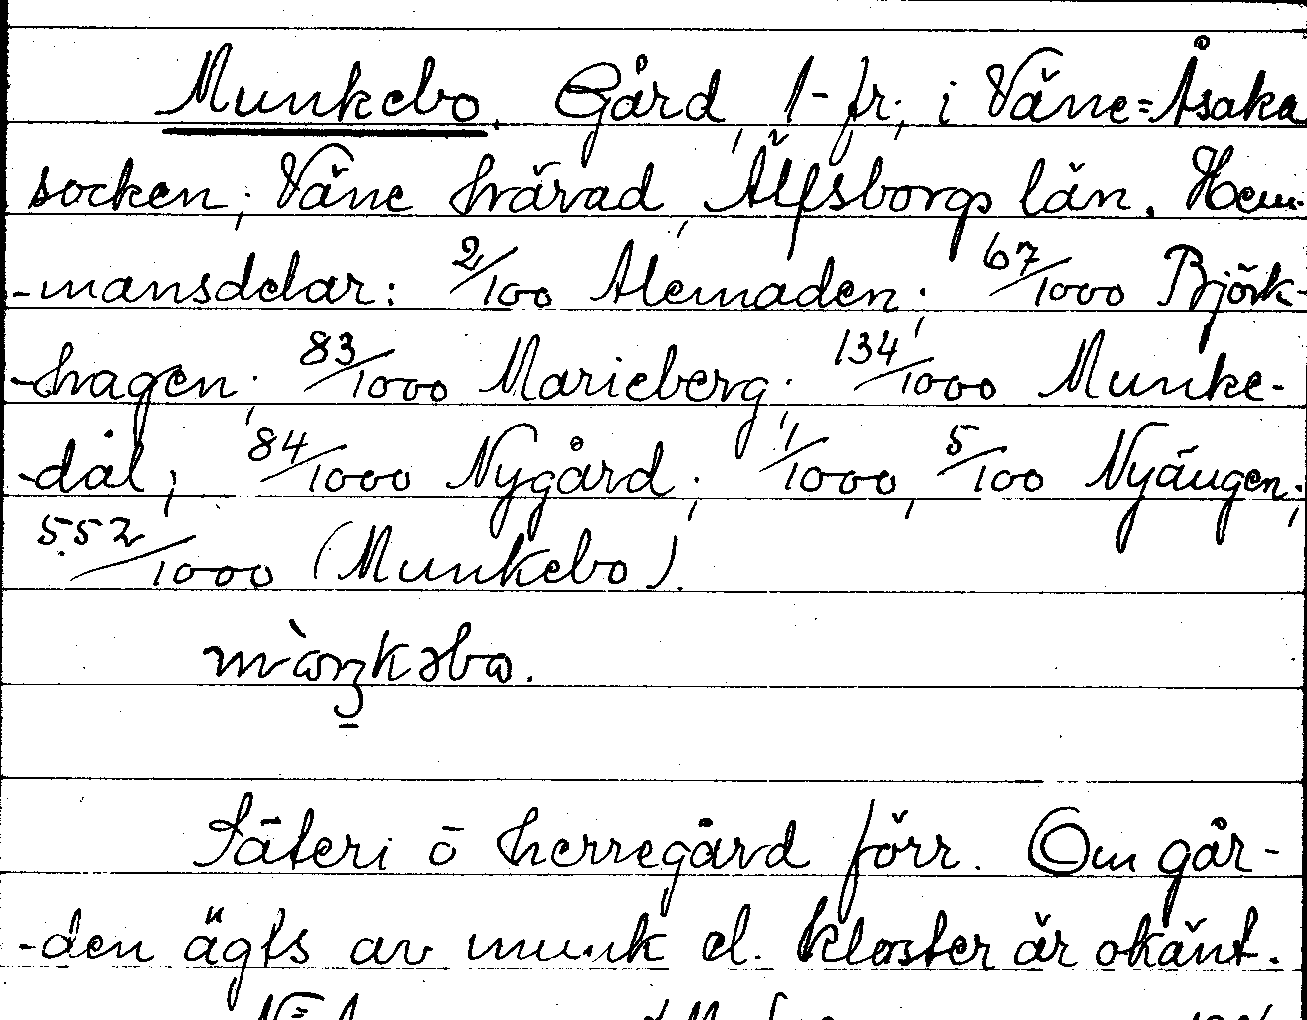 Munkebo. Gård, 1-fr; i Väne=Åsaka
socken; Väne härad, Älfsborgs län. Hem-
-mansdelar: 2/100 Alemaden; 67/1000 Björk-
-hagen; 83/1000 Marieberg; 134/1000 Munke-
-dal; 84/1000 Nygård; 1/1000, 5/100 Nyängen;
552/1000 (Munkebo).
Säteri o herregård förr. Om går-
-den ägts av munk el. kloster är okänt.